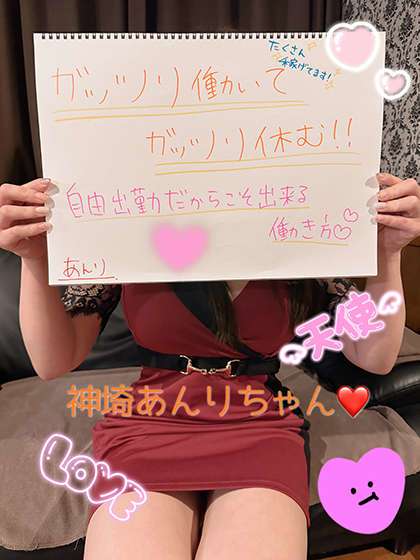 たくさん
稼げてます!
ガッツリ働いて
ガッツリ休む!!
自由出勤だからこそ出来る
働き方♡♡
あんり
天使
神埼あんりちゃん❤
LOVE